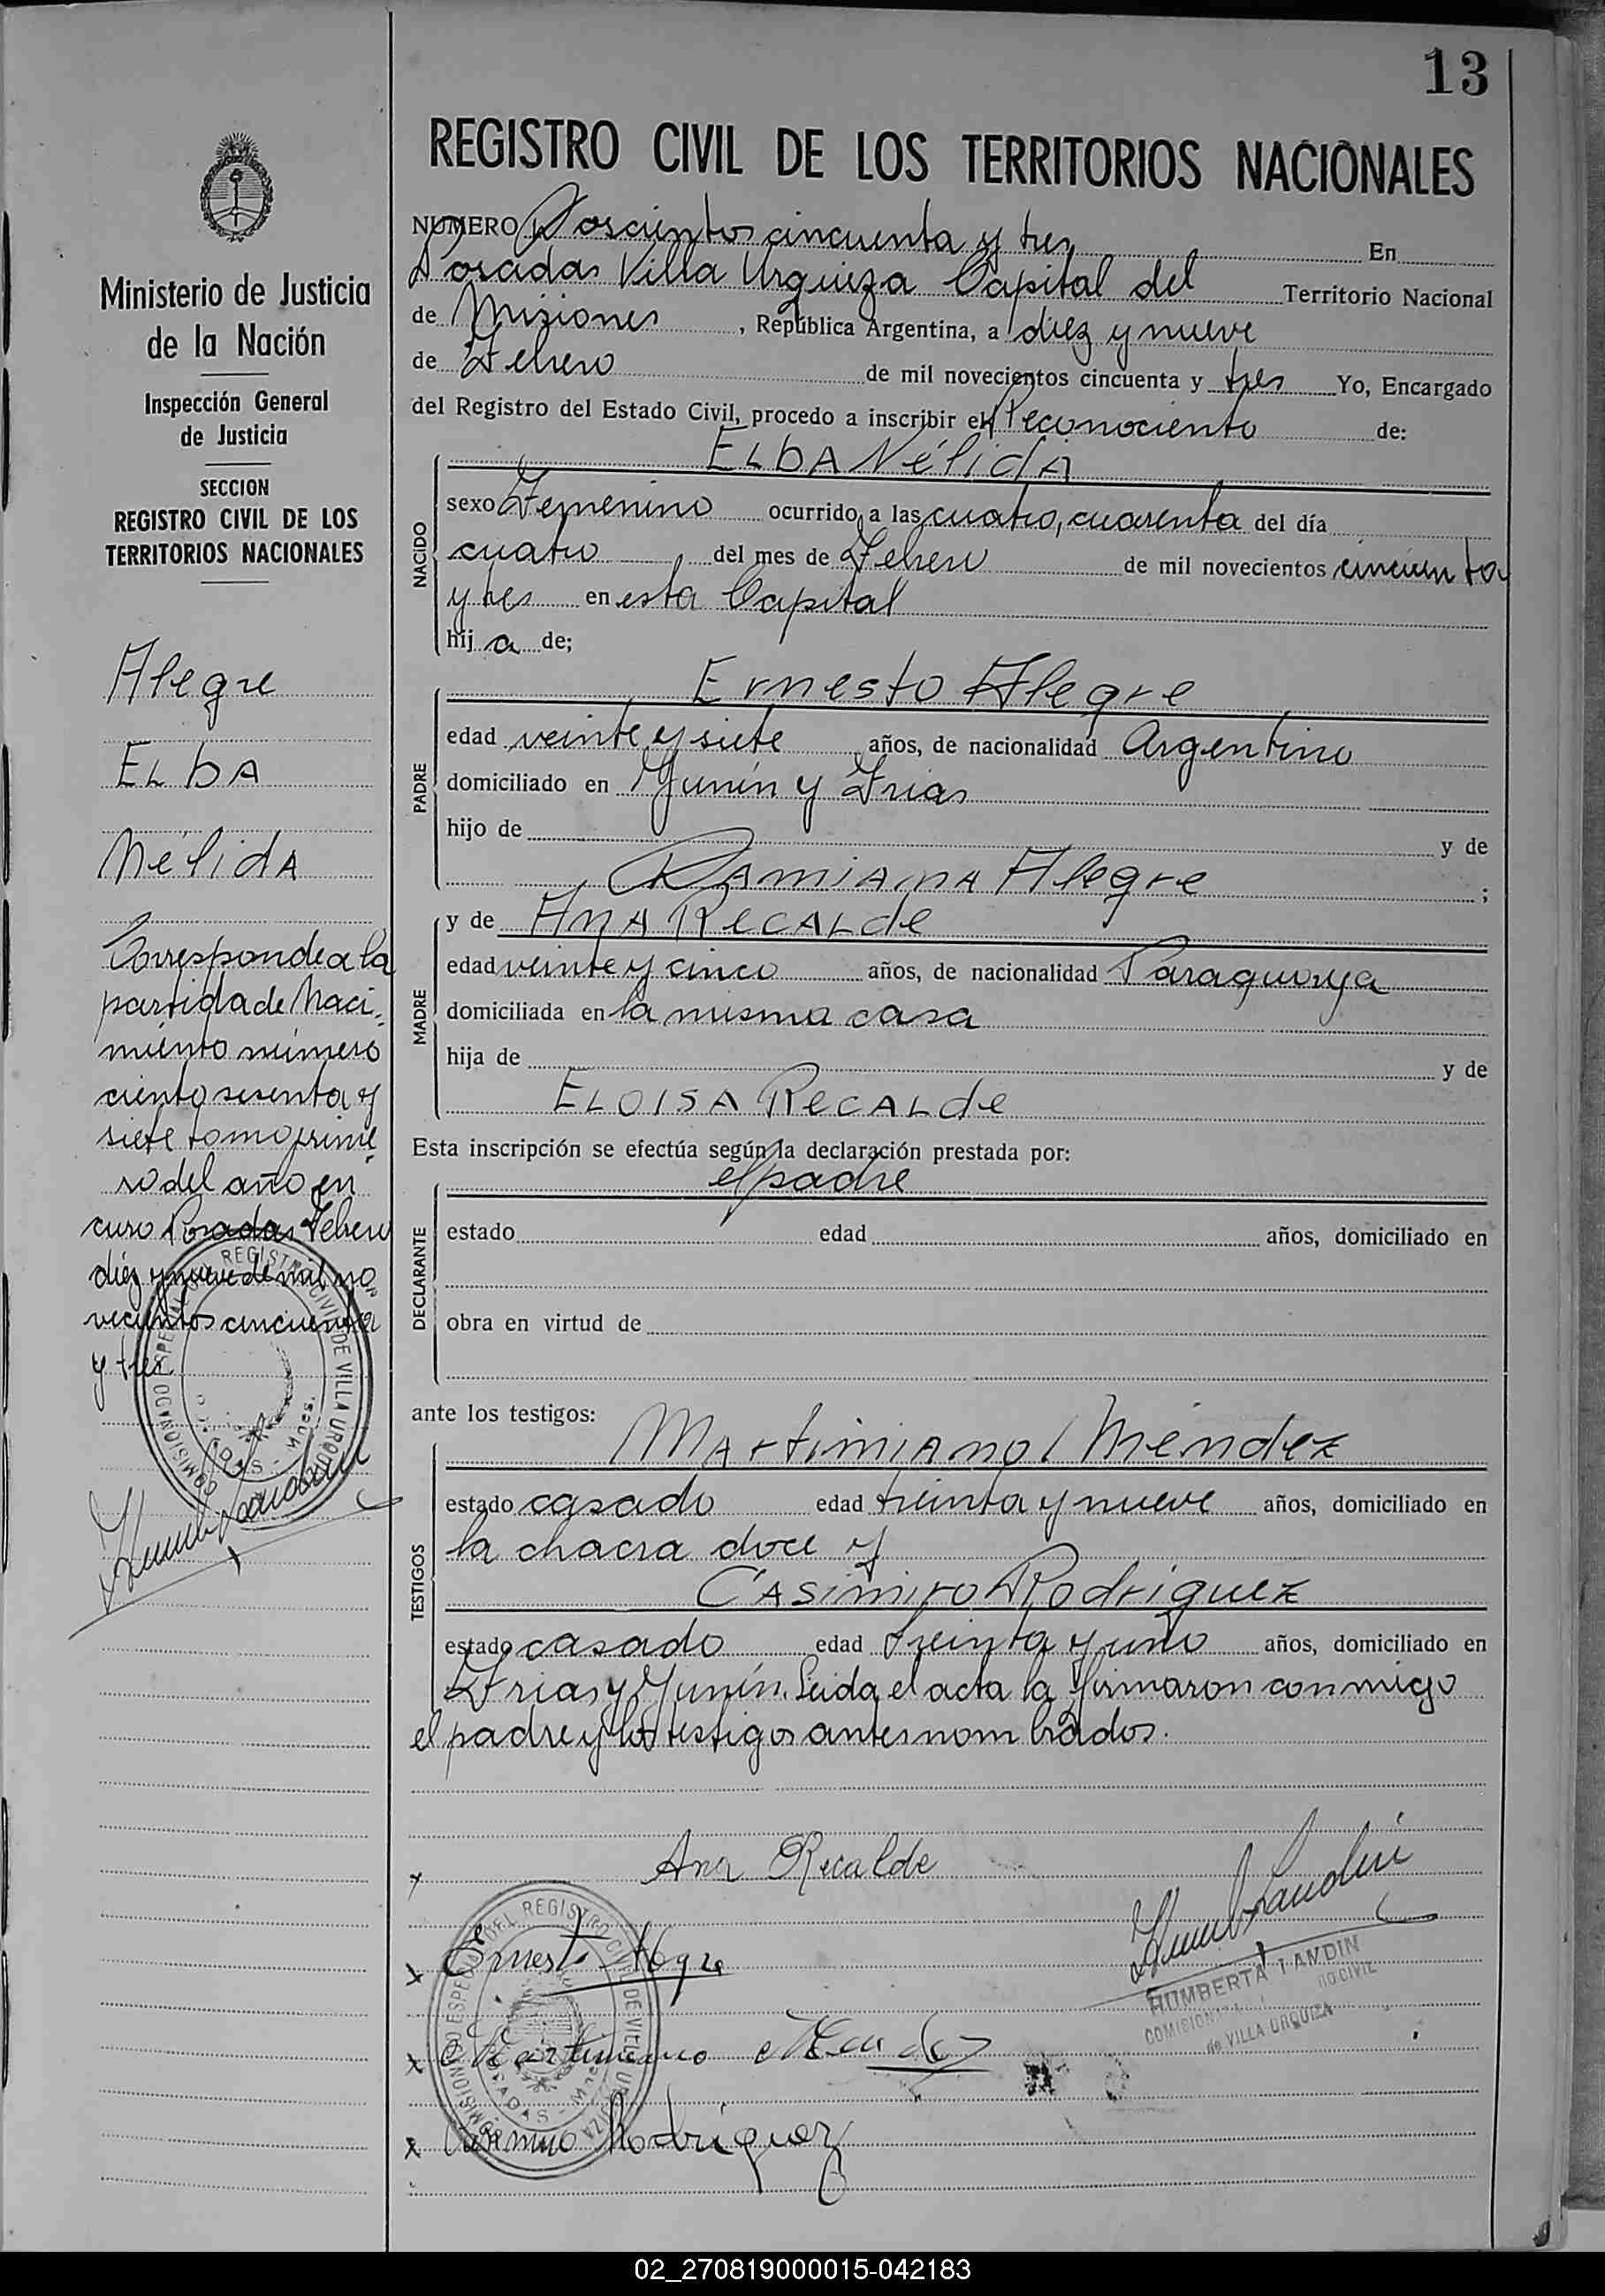 13
REGISTRO CIVIL DE LOS TERRITORIOS NACIONALES
NUMERO Doscientos cincuenta y tres En
Posadas Villa Urquiza Capital del Territorio Nacional
de Misiones, República Argentina, a diez y nueve
de Febrero de mil novecientos cincuenta y tres Yo, Encargado
del Registro del Estado Civil, procedo a inscribir el Reconociento de:
ELbA NélidA
NACIDO
sexo Femenino ocurrido a las cuatro, cuarenta del día
cuatro del mes de Febrero de mil novecientos cincuenta
y tres en esta Capital
hij a de;
Ernesto Alegre
PADRE
edad veinte y siete años, de nacionalidad Argentino
domiciliado en Junín y Frias
hijo de y de
DAMIANA Alegre ;
y de ANA RECALde
MADRE
edad veinte y cinco años, de nacionalidad Paraguaya
domiciliada en la misma casa
hija de y de
ELOISA RECALde
Esta inscripción se efectúa según la declaración prestada por:
el padre
DECLARANTE
estado edad años, domiciliado en
obra en virtud de
ante los testigos:
MArtimiAno Méndez
TESTIGOS
estado casado edad treinta y nueve años, domiciliado en
la chacra doce y
CAsimiro Rodriguez
estado casado edad treinta y uno años, domiciliado en
Frias y Junín. Leida el acta la firmaron conmigo
el padre y los testigos antes nombrados.
Ana Recalde
x Ernesto Alegre
x Martimiano Mendez
x Casimiro Rodriguez
HUMBERTA LANDIN
de VILLA URQUIZA
COMISIONADO ESPECIAL DEL REGISTRO CIVIL DE VILLA URQUIZA
POSADAS - Mnes.
Ministerio de Justicia
de la Nación
Inspección General
de Justicia
SECCION
REGISTRO CIVIL DE LOS
TERRITORIOS NACIONALES
Alegre
ELbA
NélidA
Corresponde a la
partida de Naci-
miento número
ciento sesenta y
siete tomo prime
ro del año en
curso Posadas Febrero
diez y nueve de mil no
vecientos cincuenta
y tres
COMISIONADO ESPECIAL DEL REGISTRO CIVIL DE VILLA URQUIZA
POSADAS - Mnes.
02_270819000015-042183